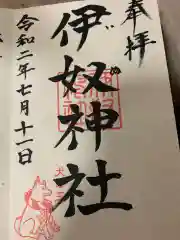 奉拝
伊奴神社
いぬ
令和二年七月十一日